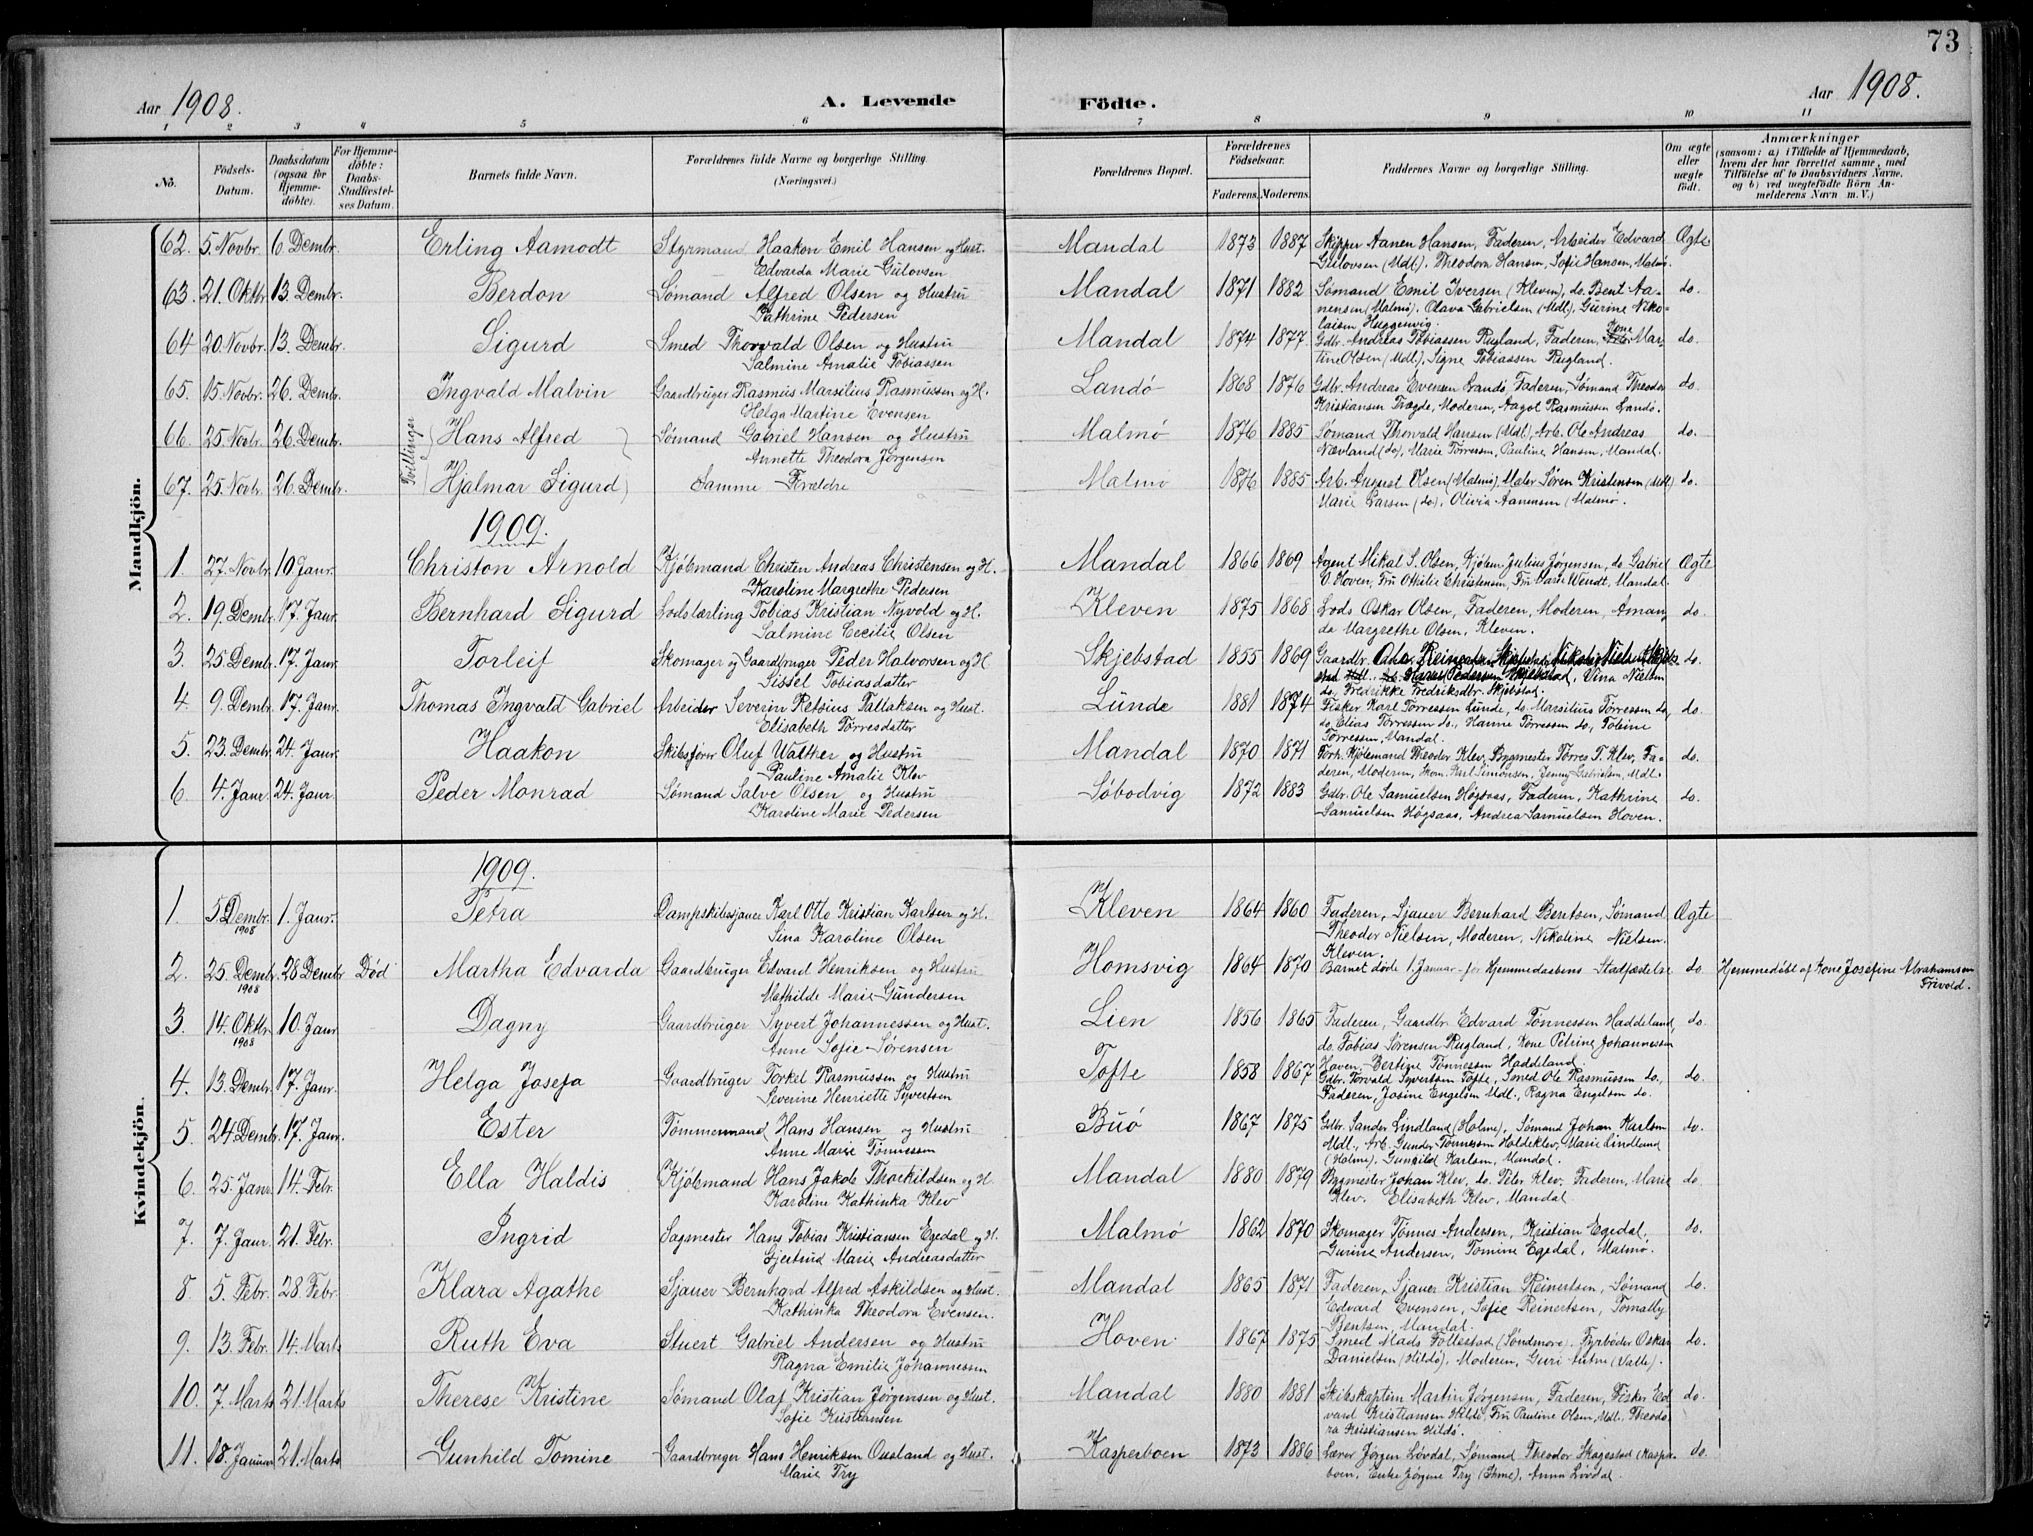 73
Aar 1908. A. Levende Födte. Aar 1908.
1 2 3 4 5 6 7 8 9 10 11
No. Födsels-Datum. Daabsdatum (ogsaa for Hjemmedöbte). For Hjemmedöbte: Daabs-Stadfæstelses Datum. Barnets fulde Navn. Forældrenes fulde Navne og borgerlige Stilling. (Næringsvei.) Forældrenes Bopæl. Forældrenes Födselsaar. Faderens. Moderens. Faddernes Navne og borgerlige Stilling. Om ægte eller uægte födt. Anmærkninger (saasom: a) i Tilfælde af Hjemmedaab, hvem der har forrettet samme, med Tilföielse af to Daabsvidners Navne, og b) ved uægtefödte Börn Anmelderens Navn m. V.)
Mandkjön.
62. 5 Novbr. 6. Dembr. Erling Aamodt Styrmand Haakon Emil Hansen og Hust. Mandal 1873 1887 Skipper Aanen Hansen, Faderen, Arbeider Edvard Ægte
Edvarda Marie Gulovsen Gulovsen (Mdl), Theodora Hansen, Sofie Hansen, Malmø.
63. 21. Oktbr. 13. Dembr. Berdon Sømand Alfred Olsen og Hustru Mandal 1871 1882 Sømand Emil Iversen (Kleven), do. Bent Aa- do.
Kathrine Pedersen nensen (Malmø), Olava Gabrielsen (Mdl), Gurine Niko-
laisen Huggenvig.
64 20. Novbr. 13. Dembr. Sigurd Smed Thorvald Olsen og Hustru Mandal 1874 1877 Gdbr. Andreas Tobiassen Rugland, Faderen, Kone Mar- do.
Salmine Amalie Tobiassen tine Olsen (Mdl), Signe Tobiassen Rugland.
65. 15. Novbr. 26. Dembr. Ingvald Malvin Gaardbruger Rasmus Marselius Rasmussen og H. Landø 1868 1876 Gdbr. Andreas Evensen Landø, Faderen, Sømand Theodor do.
Helga Martine Evensen Kristiansen Trægde, Moderen, Aagot Rasmussen Landø.
Tvillinger
66. 25. Novbr. 26. Dembr. Hans Alfred Sømand Gabriel Hansen og Hustru Malmø 1876 1885 Sømand Thorvald Hansen (Mdl), Arb. Ole Andreas do.
Annette Theodora Jørgensen Nævland (do), Marie Tørresen, Pauline Hansen, Mandal.
67. 25. Novbr. 26. Dembr. Hjalmar Sigurd Samme Forældre Malmø 1876 1885 Arb. August Olsen (Malmø), Maler Søren Kristensen (Mdl) do.
Marie Larsen (do), Olivia Aanensen (Malmø).
1909.
1. 27. Novbr. 10 Janr. Christon Arnold Kjøbmand Christen Andreas Christensen og H. Mandal 1866 1869 Agent Mikal S. Olsen, Kjøbm. Julius Jørgensen, do Gabriel Ægte
Karoline Margrethe Pedersen Hoven, Fru Othilie Christensen, Fru Wendt, Mandal.
2. 19. Dembr. 17. Janr. Bernhard Sigurd Lodslærling Tobias Kristian Nyvold og H. Kleven 1875 1868 Lods Oskar Olsen, Faderen, Moderen, Aman- do.
Salmine Cecilie Olsen da Margrethe Olsen, Kleven.
3. 25. Dembr. 17. Janr. Torleif Skomager og Gaardbruger Peder Halvorsen og H Skjebstad 1855 1869 Gaardbr. do.
Sissel Tobiasdatter Pedersen Skjebstad, Nielsen
do, Fredrikke Fredriksdtr. Skjebstad.
4. 9. Dembr. 17. Janr. Thomas Ingvald Gabriel Arbeider Severin Retsius Tallaksen og Hust. Lunde 1881 1874 Fisker Karl Tørressen Lunde, do. Marsilius Tørressen do, do.
Elisabeth Tørresdatter do Elias Tørressen do, Hanne Tørressen do, Tobine
Tørressen, Mandal.
5. 23. Dembr. 24. Janr. Haakon Skibsfører Oluf Walther og Hustru Mandal 1870 1871 Forh. Kjøbmand Theodor Klev, Bygmester Tørres T. Klev, Fa- do.
Pauline Amalie Klev deren, Moderen, Karl Simonsen, Jenny Gabrielsen, Mdl.
6. 4. Janr. 24. Janr. Peder Monrad Sømand Salve Olsen og Hustru Søbodvig 1872 1883 Gdbr. Ole Samuelsen Høgsaas, Faderen, Kathrine do.
Karoline Marie Pedersen Samuelsen Høgsaas, Andrea Samuelsen Hoven.
Kvindekjön.
1909.
1. 5 Dembr. 1908 1. Janr. Petra Dampskibssjauer Karl Otto Kristian Karlsen og H. Kleven 1864 1860 Faderen, Sjauer Bernhard Berntsen, Sømand Ægte
Sina Karoline Olsen Theodor Nielsen, Moderen, Nikoline Nielsen.
Kleven.
2. 25. Dembr. 1908 28 Dembr. Død Martha Edvarda Gaardbruger Edvard Henriksen og Hustru Homsvig 1864 1870 Barnet døde 1. Januar før Hjemmedaabens Stadfæstelse do. Hjemmedøbt af Kone Josefine Abrahamsen
Mathilde Marie Gundersen Frivold.
3. 14. Oktbr. 1908 10. Janr. Dagny Gaardbruger Syvert Johannessen og Hust. Lien 1856 1865 Faderen, Gaardbr. Edvard Tønnessen Haddeland, do.
Anne Sofie Sørensen do Tobias Sørensen Rugland, Kone Petrine Johannessen
Hoven, Bertine Tønnessen Haddeland.
4. 13. Dembr. 17. Janr. Helga Josefa Gaardbruger Torkel Rasmussen og Hustru Tofte 1858 1867 Gdbr. Torvald Syvertsen Tofte, Smed Ole Rasmussen do., do.
Severine Henriette Syvertsen Faderen, Josine Engelsen Mdl., Ragna Engelsen do.
5. 24. Dembr. 17. Janr. Ester Tømmermand Hans Hansen og Hustru Buø 1867 1875 Gdbr. Sander Lindland (Holme), Sømand Johan Karlsen do.
Anne Marie Tønnessen Mdl., Arb. Gunder Tønnessen Holdeklev, Marie Lindland
(Holme), Gunhild Karlsen, Mandal.
6. 25. Janr. 14. Febr. Ella Haldis Kjøbmand Hans Jakob Thorkildsen og H. Mandal 1880 1879 Bygmester Johan Klev, do. Peter Klev, Faderen, Marie do.
Karoline Kathinka Klev Klev, Elisabeth Klev, Mandal
7. 7. Janr. 21. Febr. Ingrid Sagmester Hans Tobias Kristiansen Egedal og H. Malmø 1862 1870 Skomager Tønnes Andersen, Kristian Egedal, do.
Gjertrud Marie Andreasdatter Gurine Andersen, Tomine Egedal, Malmø.
8 5. Febr. 28. Febr. Klara Agathe Sjauer Bernhard Alfred Askildsen og Hust. Mandal 1865 1871 Faderen, Sjauer Kristian Reinertsen, Sømand do.
Kathinka Theodora Evensen. Edvard Evensen, Sofie Reinertsen, Tomally
Bentsen, Mandal.
9. 13. Febr. 14. Marts Ruth Eva Stuert Gabriel Andersen og Hustru Hoven 1867 1875 Smed Mads Follestad (Søndmøre), Fyrbøder Oskar do.
Ragna Emilie Johannessen Danielsen (Hildø), Moderen, Guri (Valle).
10. 7. Marts 21. Marts Therese Kristine Sømand Olaf Kristian Jørgensen og Hust. Mandal 1880 1881 Skibskaptein Martin Jørgensen, Faderen, Fisker Ed- do.
Sofie Kristiansen vard Kristiansen Hildø, Fru Pauline Olsen, Mdl. Theodo-
ra Kristiansen Hildø.
11. 18. Januar 21. Marts Gunhild Tomine Gaardbruger Hans Henriksen Ousland og Hust. Kasperboen 1873 1886 Lærer Jørgen Løvdal, Sømand Theodor Skagestad (Kaspa- do.
Marie Try boen, Enke Jørgine Try, Anna Løvdal.